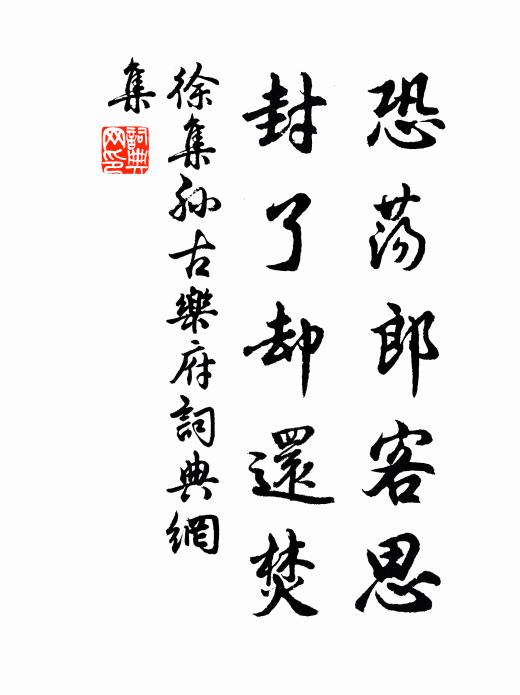 恐荡郎客思
封了却還焚
徐集孙古樂府詞典網
集
詞典
网印